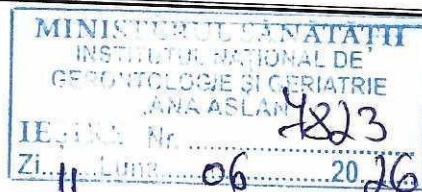 MINISTERUL SĂNĂTĂȚII
INSTITUTUL NAȚIONAL DE
GERONTOLOGIE ȘI GERIATRIE
„ANA ASLAN”
IEȘIRE Nr. 7823
Zi 11 Luna 06 20 26